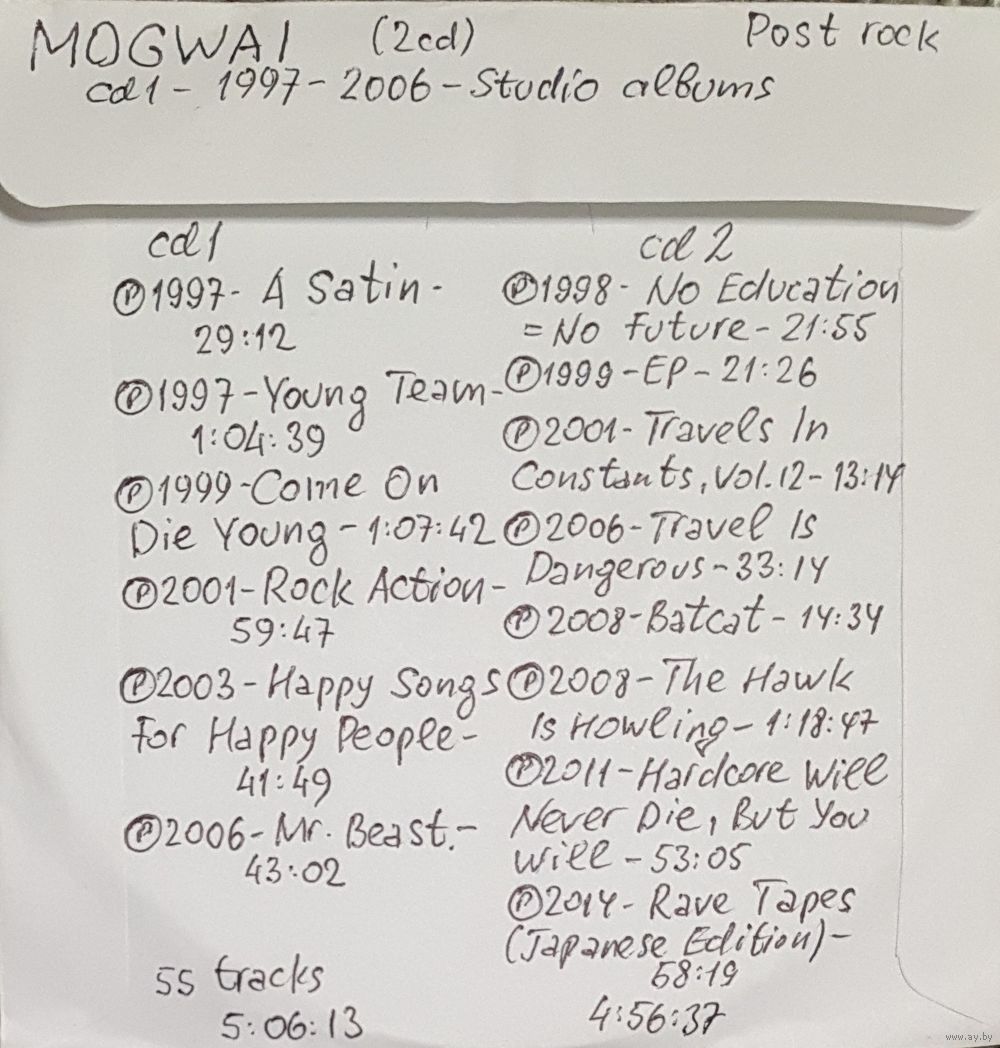 MOGWAI (2cd) Post rock
cd1 - 1997 - 2006 - Studio albums
cd1
℗1997- A Satin -
29:12
℗1997-Young Team-
1:04:39
℗1999-Come On
Die Young - 1:07:42
℗2001-Rock Action-
59:47
℗2003-Happy Songs
For Happy People-
41:49
℗2006-Mr. Beast.-
43:02
55 tracks
5:06:13
cd2
℗1998- No Education
= No future - 21:55
℗1999-EP- 21:26
℗2001-Travels In
Constants, Vol.12-13:14
℗2006-Travel Is
Dangerous-33:14
℗2008-Batcat - 14:34
℗2008-The Hawk
Is Howling - 1:18:47
℗2011-Hardcore Will
Never Die, But You
Will - 53:05
℗2014- Rave Tapes
(Japanese Edition)-
58:19
4:56:37
www.ay.by